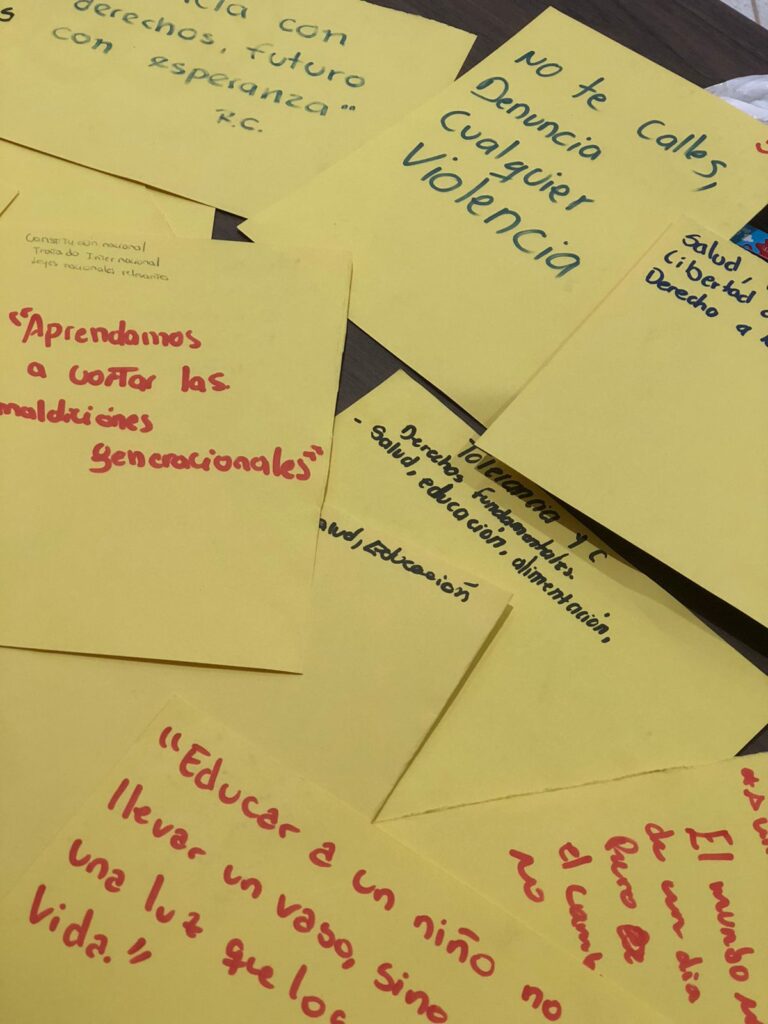 con
derechos, futuro
con esperanza"
R.C.
No te Calles,
Denuncia
Cualquier
Violencia
Salud,
Libertad
Derecho a
Constitución nacional
Tratado Internacional
Leyes nacionales relevantes
"Aprendamos
a cortar las
maldiciónes
generacionales"
Tolerancia y
Derechos fundamentales.
- Salud, educación, alimentación,
Salud, Educación
"Educar a un niño no
llevar un vaso, sino
una luz que
Vida."
El mundo
de un dia
Pero
el
no